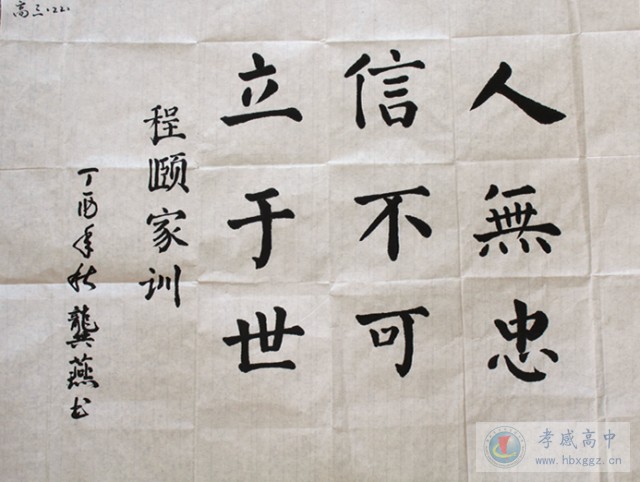 人無忠
信不可
立于世
程頤家训
丁酉年秋龔燕书
高三(22)
孝感高中
www.hbxggz.cn